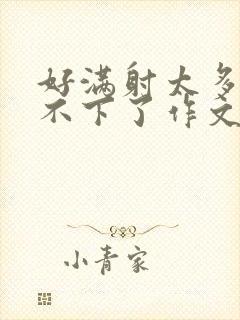 好满射太多
不下了作文
小青家